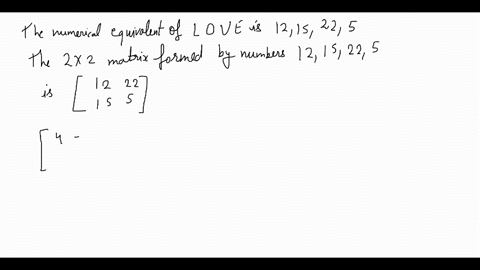 The numerical equivalent of L O V E is 12, 15, 22, 5
The 2 x 2 matrix formed by numbers 12, 15, 22, 5
is [ 12 22
15 5 ]
[ 4 -